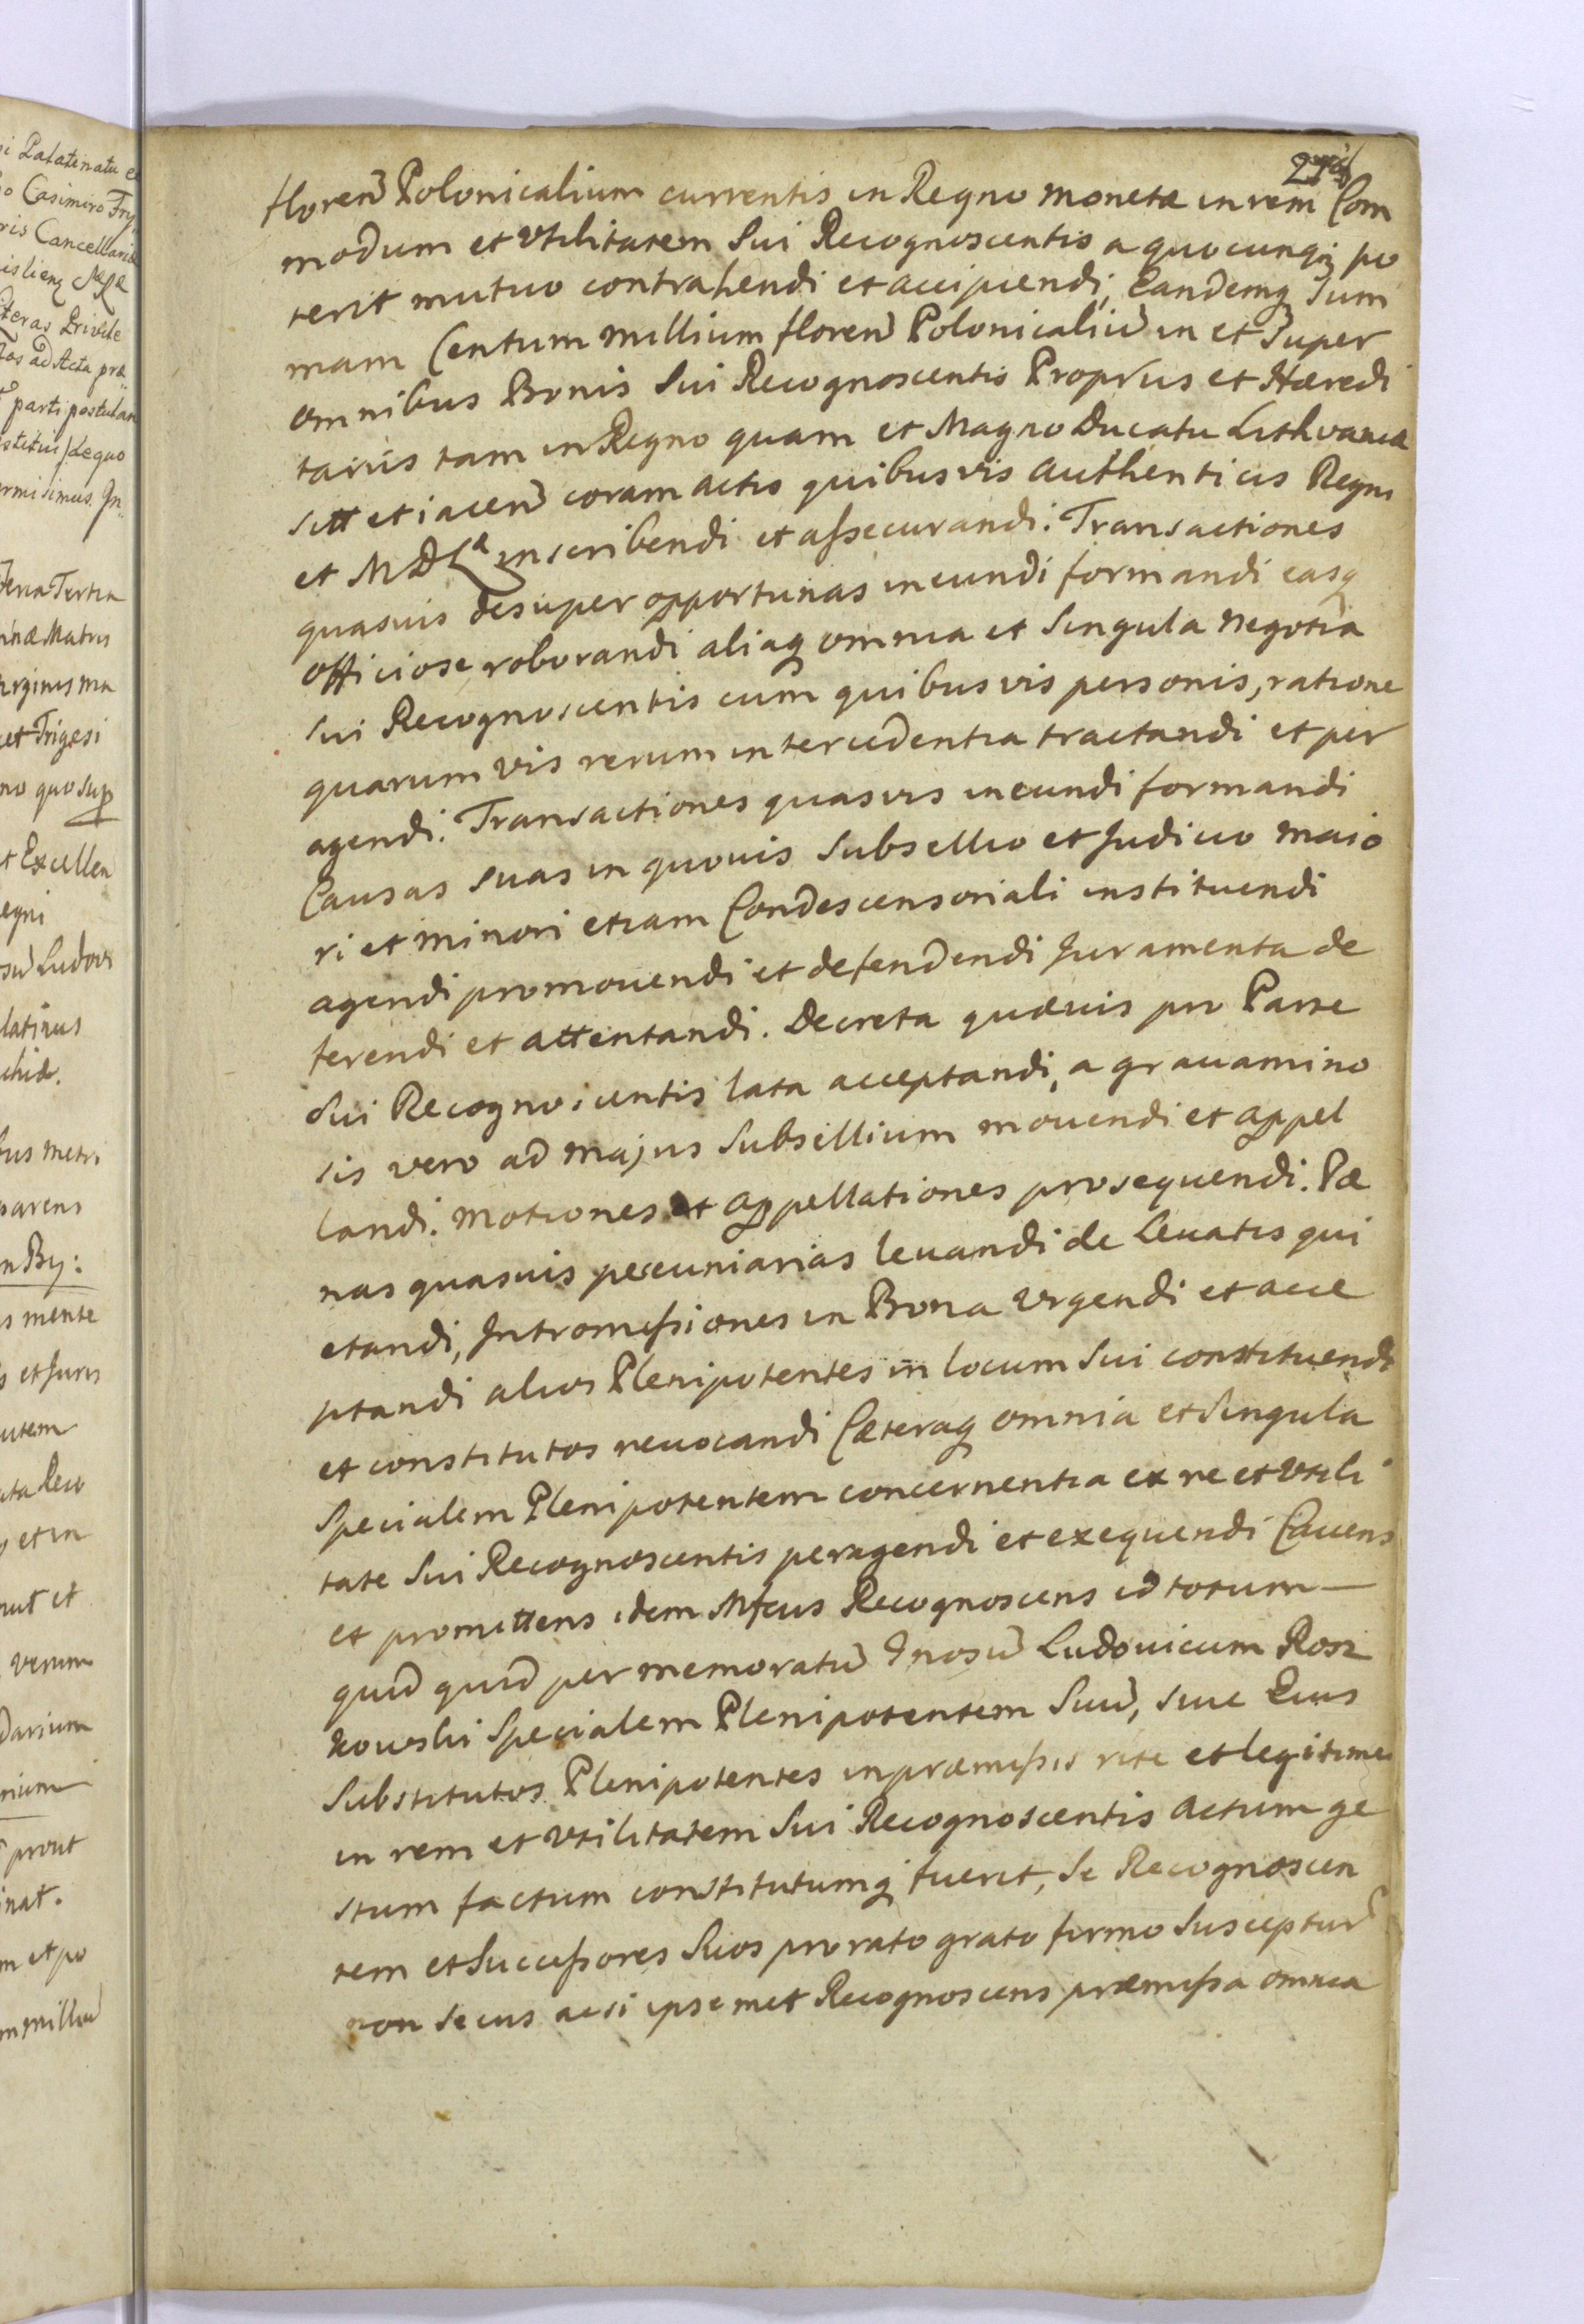 i Palatinatu e
o Casimiro Fry
ris Cancellariæ
teras Privile
tos ad Acta præ
parti postulan
stitui/ de quo
rmisimus. In
Feria Tertia
inæ Matris
irginis Ma
et Trigesi
no quo sup
t Excellen
egni
Ludovi
latinus
chiæ.
bus metri
parens
n By:
s mente
s et Juris
utem
ata Reco
et in
nut et
verum
darium
rium
prout
inat.
m et po
m milliu
floren Polonicalium currentis in Regno monetæ in rem Com
modum et Vtilitatem Sui Recognoscentis a quocunqꝫ po
terit mutuo contrahendi et accipiendi, Eandemqꝫ Sum
mam Centum millium floren Polonicaliu in et Super
omnibus Bonis Sui Recognoscentis Proprijs et Hæredi
tarijs tam in Regno quam et Magno Ducatu Lithvaniæ
sitt et iacen coram actis quibusvis authenticis Regni
et MDLæ inscribendi et assecurandi. Transactiones
quasuis desuper opportunas ineundi formandi easqꝫ
officiose roborandi aliaqꝫ omnia et Singula negotia
Sui Recognoscentis cum quibusvis personis, ratione
quarumvis rerum intercedentia tractandi et per
agendi. Transactiones quasvis ineundi formandi
Causas suas in quouis Subsellio et Judicio maio
ri et minori etiam Condescensoriali instituendi
agendi promouendi et defendendi Juramenta de
ferendi et attentandi. Decreta quæuis pro Parte
Sui Recognoscentis lata acceptandi, a grauamino
sis vero ad majus Subsellium mouendi et appel
landi. Motiones et appellationes prosequendi. Pæ
nas quasuis pecuniarias leuandi de Leuatis qui
etandi, Intromissiones in Bona Vrgendi et acce
ptandi alios Plenipotentes in locum Sui constituendi
et constitutos reuocandi Cæteraqꝫ omnia et Singula
Specialem Plenipotentem concernentia ex re et Vtili
tate Sui Recognoscentis peragendi et exequendi Cauens
et promittens idem Mfcus Recognoscens id totum
quid quid per memoratu Gnosu Ludouicum Rosz
kowski Specialem Plenipotentem Suu, siue Eius
Substitutos Plenipotentes in præmissis rite et legitime
in rem et Vtilitatem Sui Recognoscentis actum ge
stum factum constitutumqꝫ fuerit, Se Recognoscen
tem et Successores Suos pro rato grato firmo Susceptur
non secus acsi ipsemet Recognoscens præmissa omnia